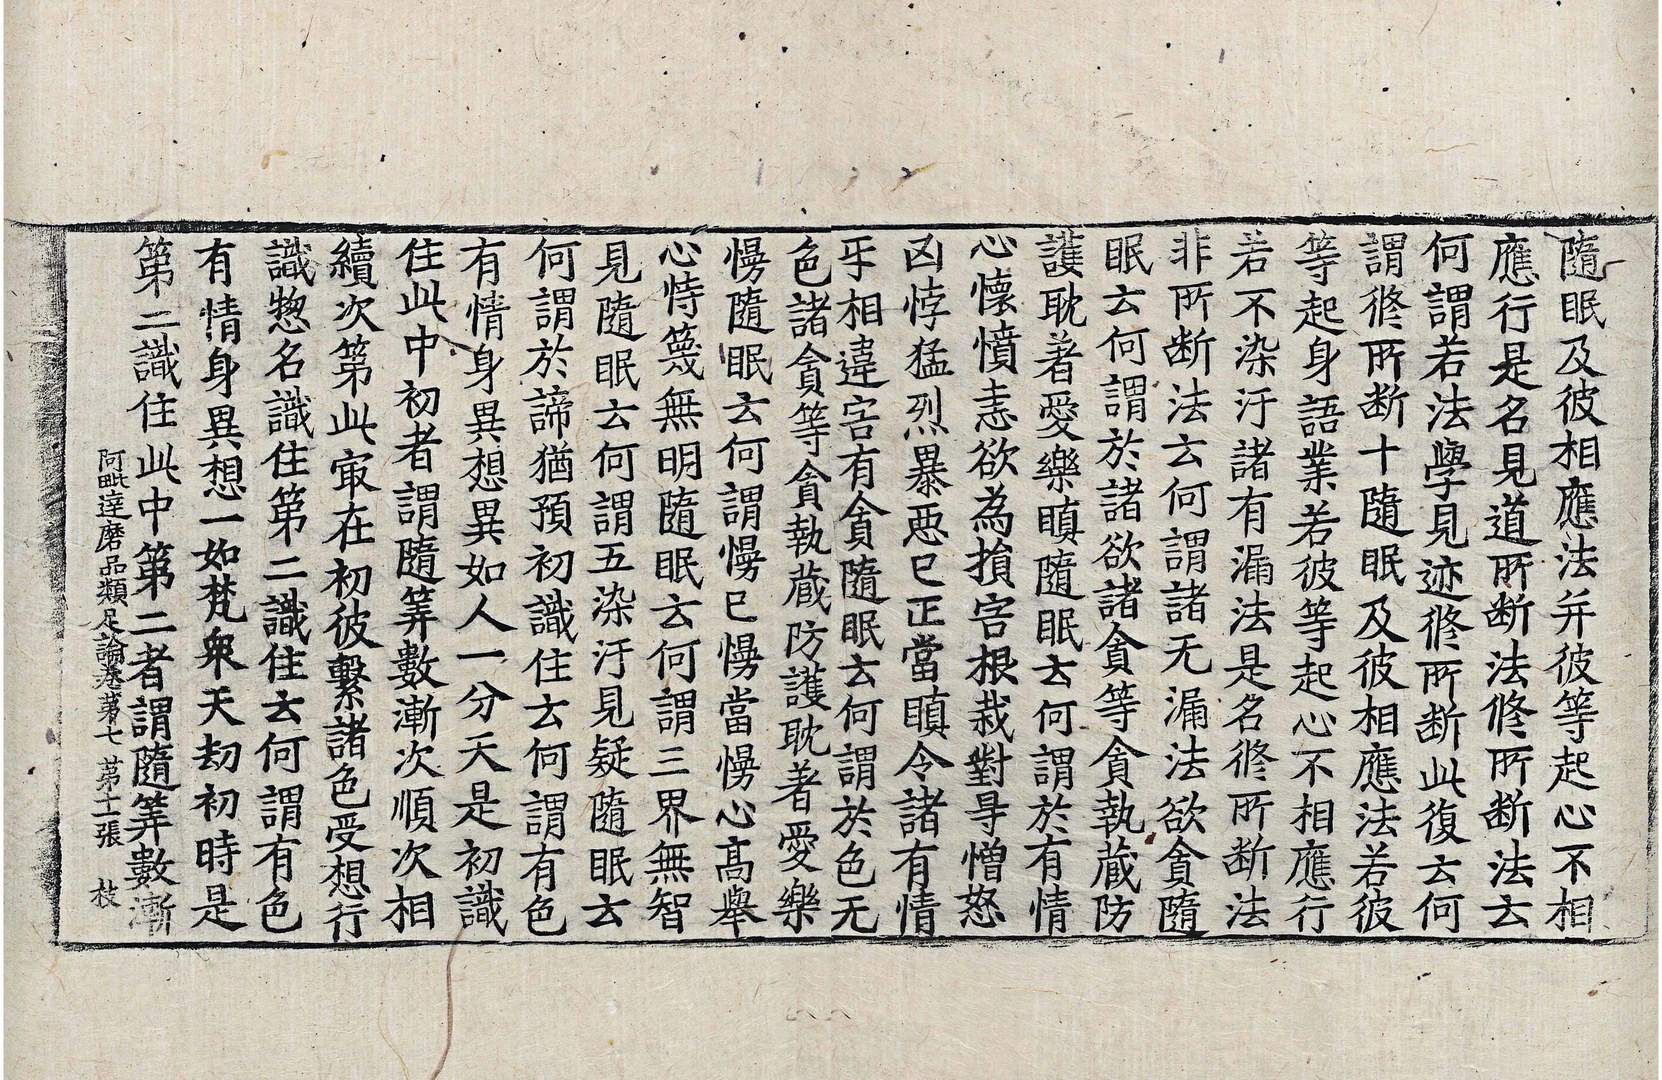 隨眠及彼相應法并彼等起心不相
應行是名見道所断法修所断法云
何謂若法學見迹修所断此復云何
謂修所断十隨眠及彼相應法若彼
等起身語業若彼等起心不相應行
若不染汙諸有漏法是名修所断法
非所断法云何謂諸无漏法欲貪隨
眠云何謂於諸欲諸貪等貪執藏防
護耽著愛樂瞋隨眠云何謂於有情
心懷憤恚欲為損害根栽對㝵憎怒
凶悖猛烈暴惡已正當瞋令諸有情
乎相違害有貪隨眠云何謂於色无
色諸貪等貪執藏防護耽著愛樂
慢隨眠云何謂慢已慢當慢心高舉
心恃篾無明隨眠云何謂三界無智
見隨眠云何謂五染汙見疑隨眠云
何謂於諦猶預初識住云何謂有色
有情身異想異如人一分天是初識
住此中初者謂隨筭數漸次順次相
續次第此㝡在初彼繫諸色受想行
識惣名識住第二識住云何謂有色
有情身異想一如梵衆天劫初時是
第二識住此中第二者謂隨筭數漸
阿毗達磨品類足論卷苐七 苐十一張 枝